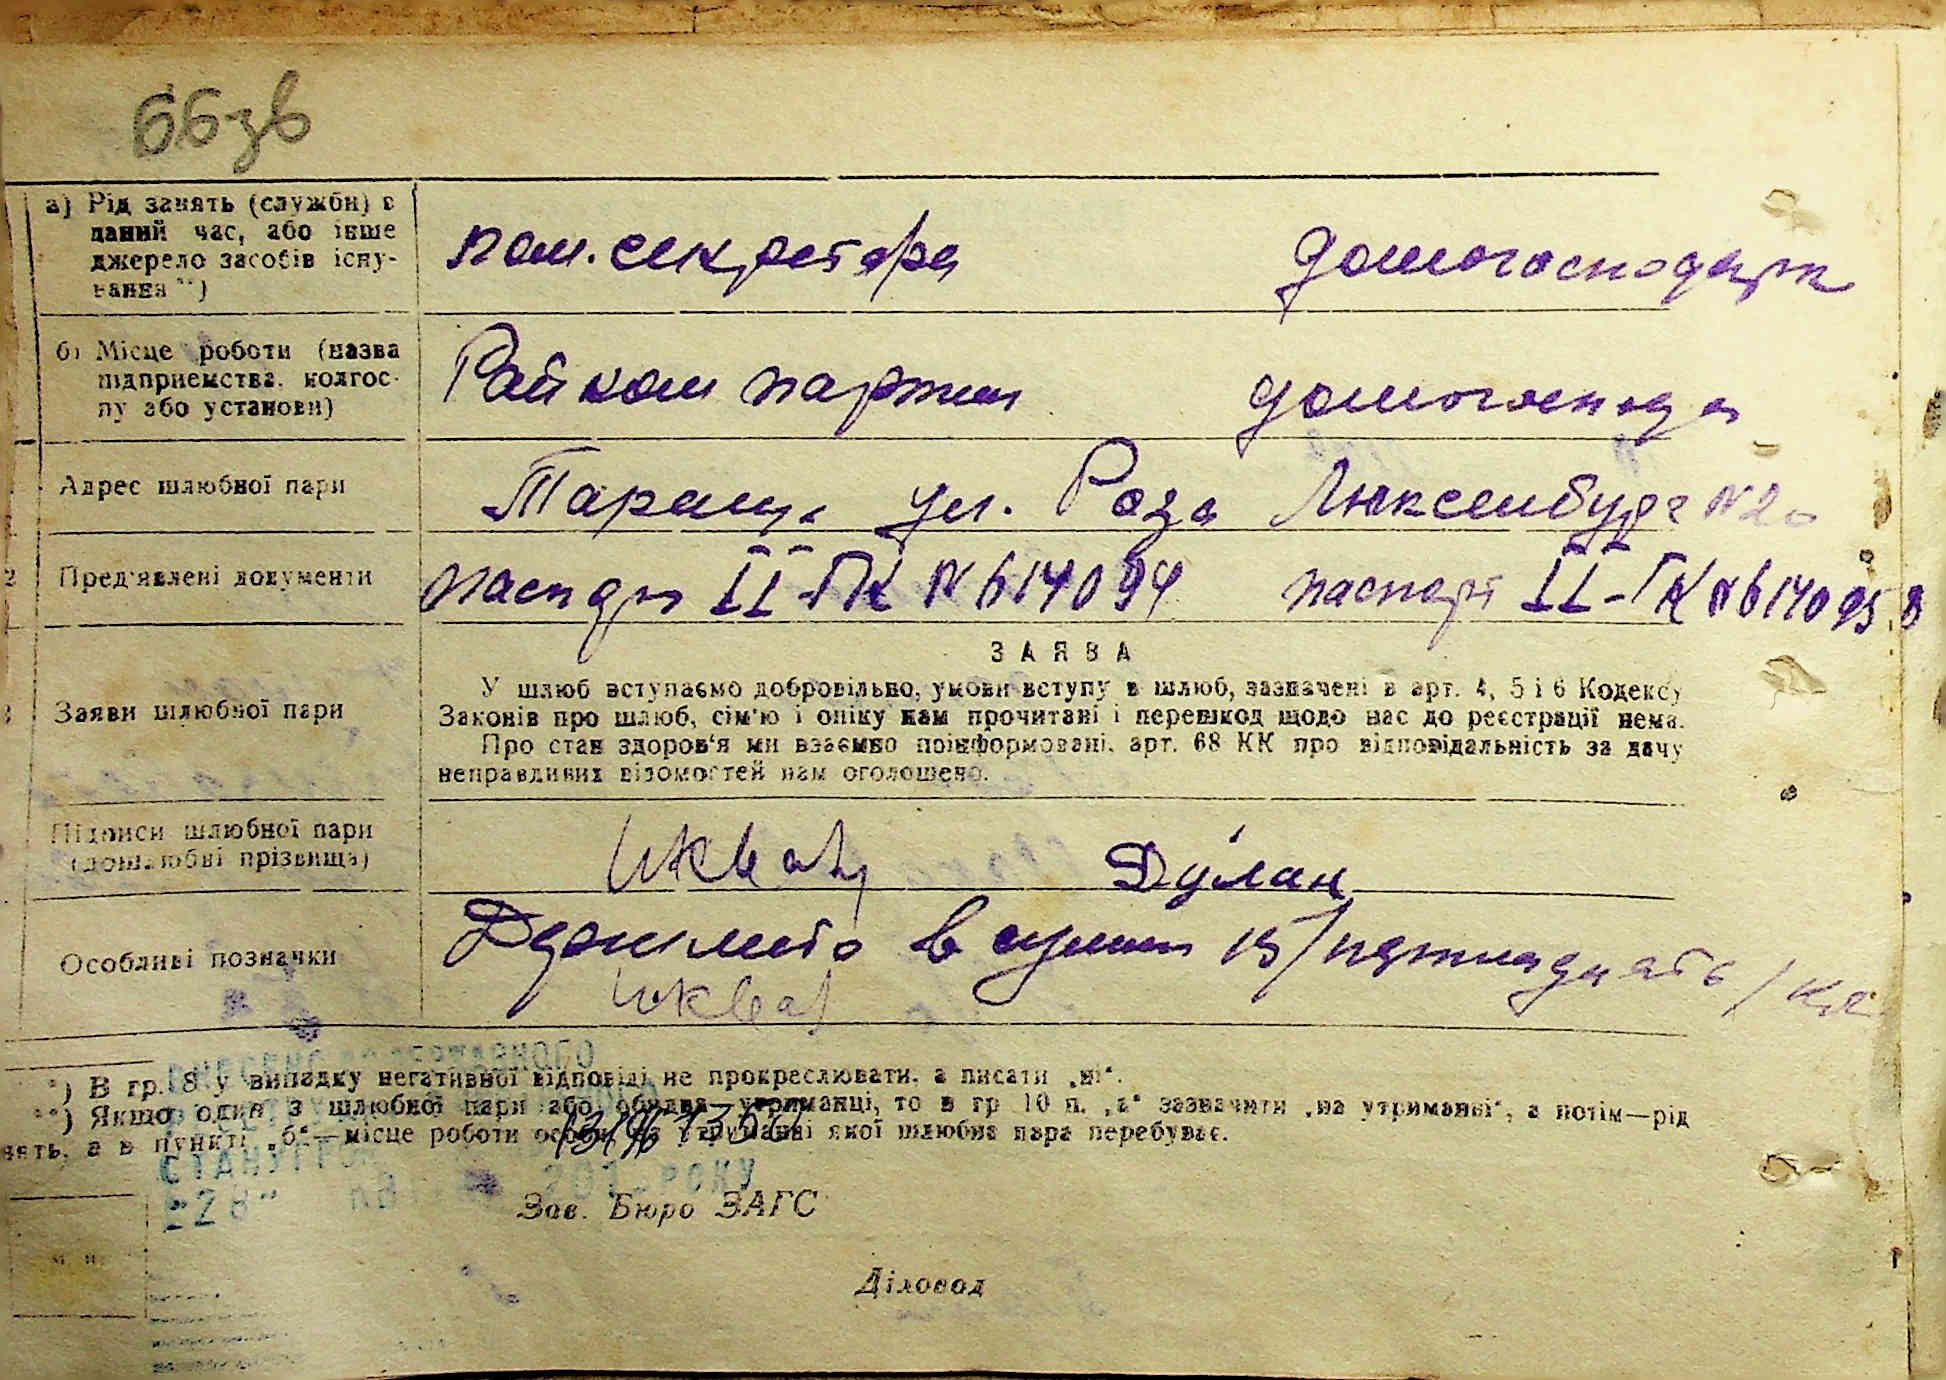 66 зв
а) Рід занять (служби) в
даний час, або інше
джерело засобів існу-
вання **)
пом. секретаря домогосподарк
б) Місце роботи (назва
підприємства, колгос-
пу або установи)
Райком партии домогоспода
Адрес шлюбної пари
Тараща ул. Роза Люксембург № 20
Пред'явлені документи
паспорт II-ГК № 614094 паспорт II-ГК № 614095
ЗАЯВА
Заяви шлюбної пари
У шлюб вступаємо добровільно, умови вступу в шлюб, зазначені в арт. 4, 5 і 6 Кодексу
Законів про шлюб, сім'ю і опіку нам прочитані і перешкод щодо нас до реєстрації нема.
Про стан здоров'я ми взаємно поінформовані, арт. 68 КК про відповідальність за дачу
неправдивих відомостей нам оголошено.
Підписи шлюбної пари
(дошлюбні прізвища)
Дулан
Особливі позначки
в сумми 15/пятнадцать/
*) В гр. 8 у випадку негативної відповіді не прокреслювати, а писати „ні“.
**) Якщо один з шлюбної пари або обидва—утриманці, то в гр 10 п. „а“ зазначити „на утриманні“, а потім—рід
нять, а в пункті „б“—місце роботи особи на утриманні якої шлюбна пара перебуває.
РОКУ
"28"
Зав. Бюро ЗАГС
Діловод